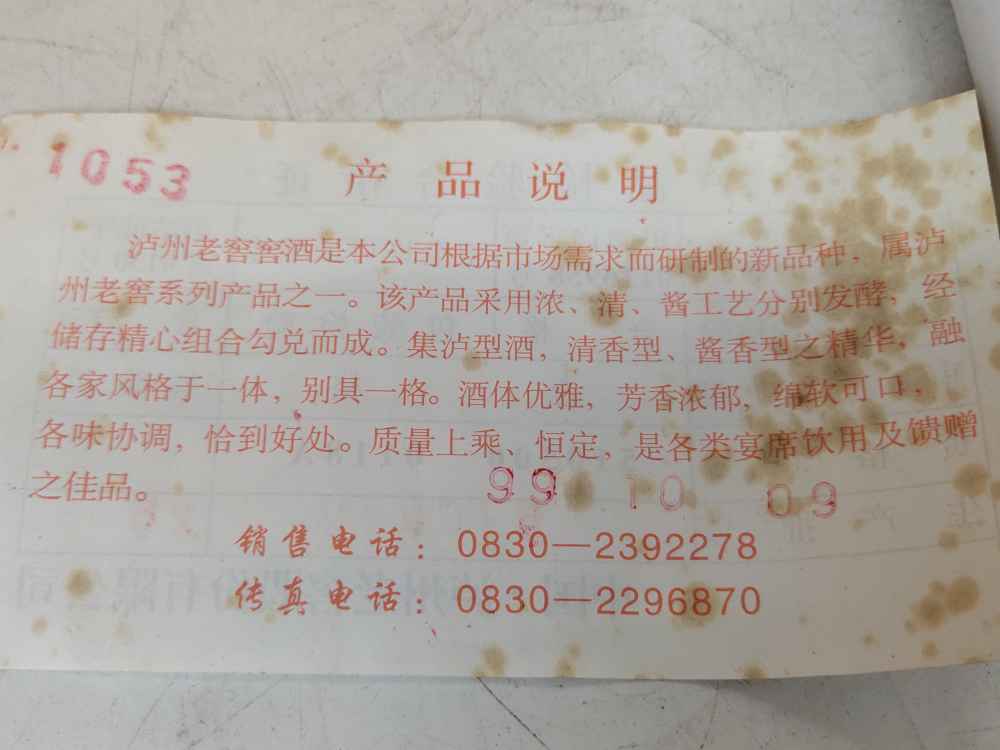 1053
产品说明
泸州老窖窖酒是本公司根据市场需求而研制的新品种，属泸
州老窖系列产品之一。该产品采用浓、清、酱工艺分别发酵，经
储存精心组合勾兑而成。集泸型酒，清香型、酱香型之精华，融
各家风格于一体，别具一格。酒体优雅，芳香浓郁，绵软可口，
各味协调，恰到好处。质量上乘、恒定，是各类宴席饮用及馈赠
之佳品。
99 10 09
销售电话：0830—2392278
传真电话：0830—2296870